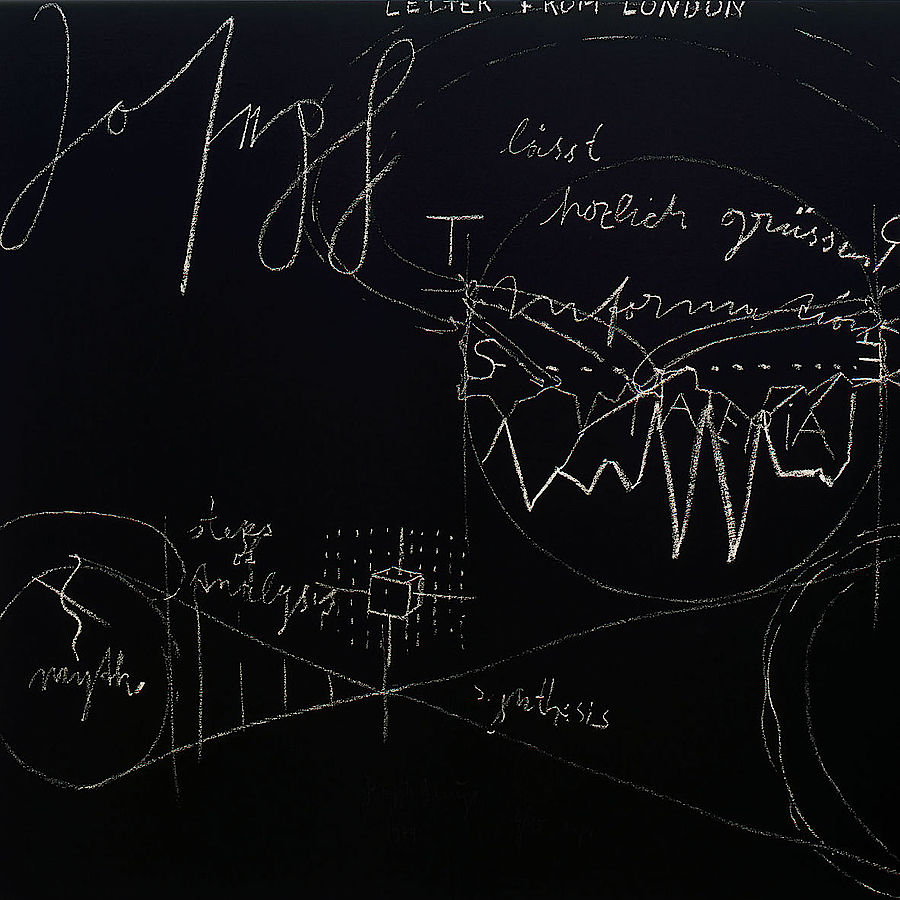 LETTER FROM LONDON
Joseph
lässt
herzlich grüssen
T
Information
S
MATERIA
steps
of
Analysis
myth.
synthesis